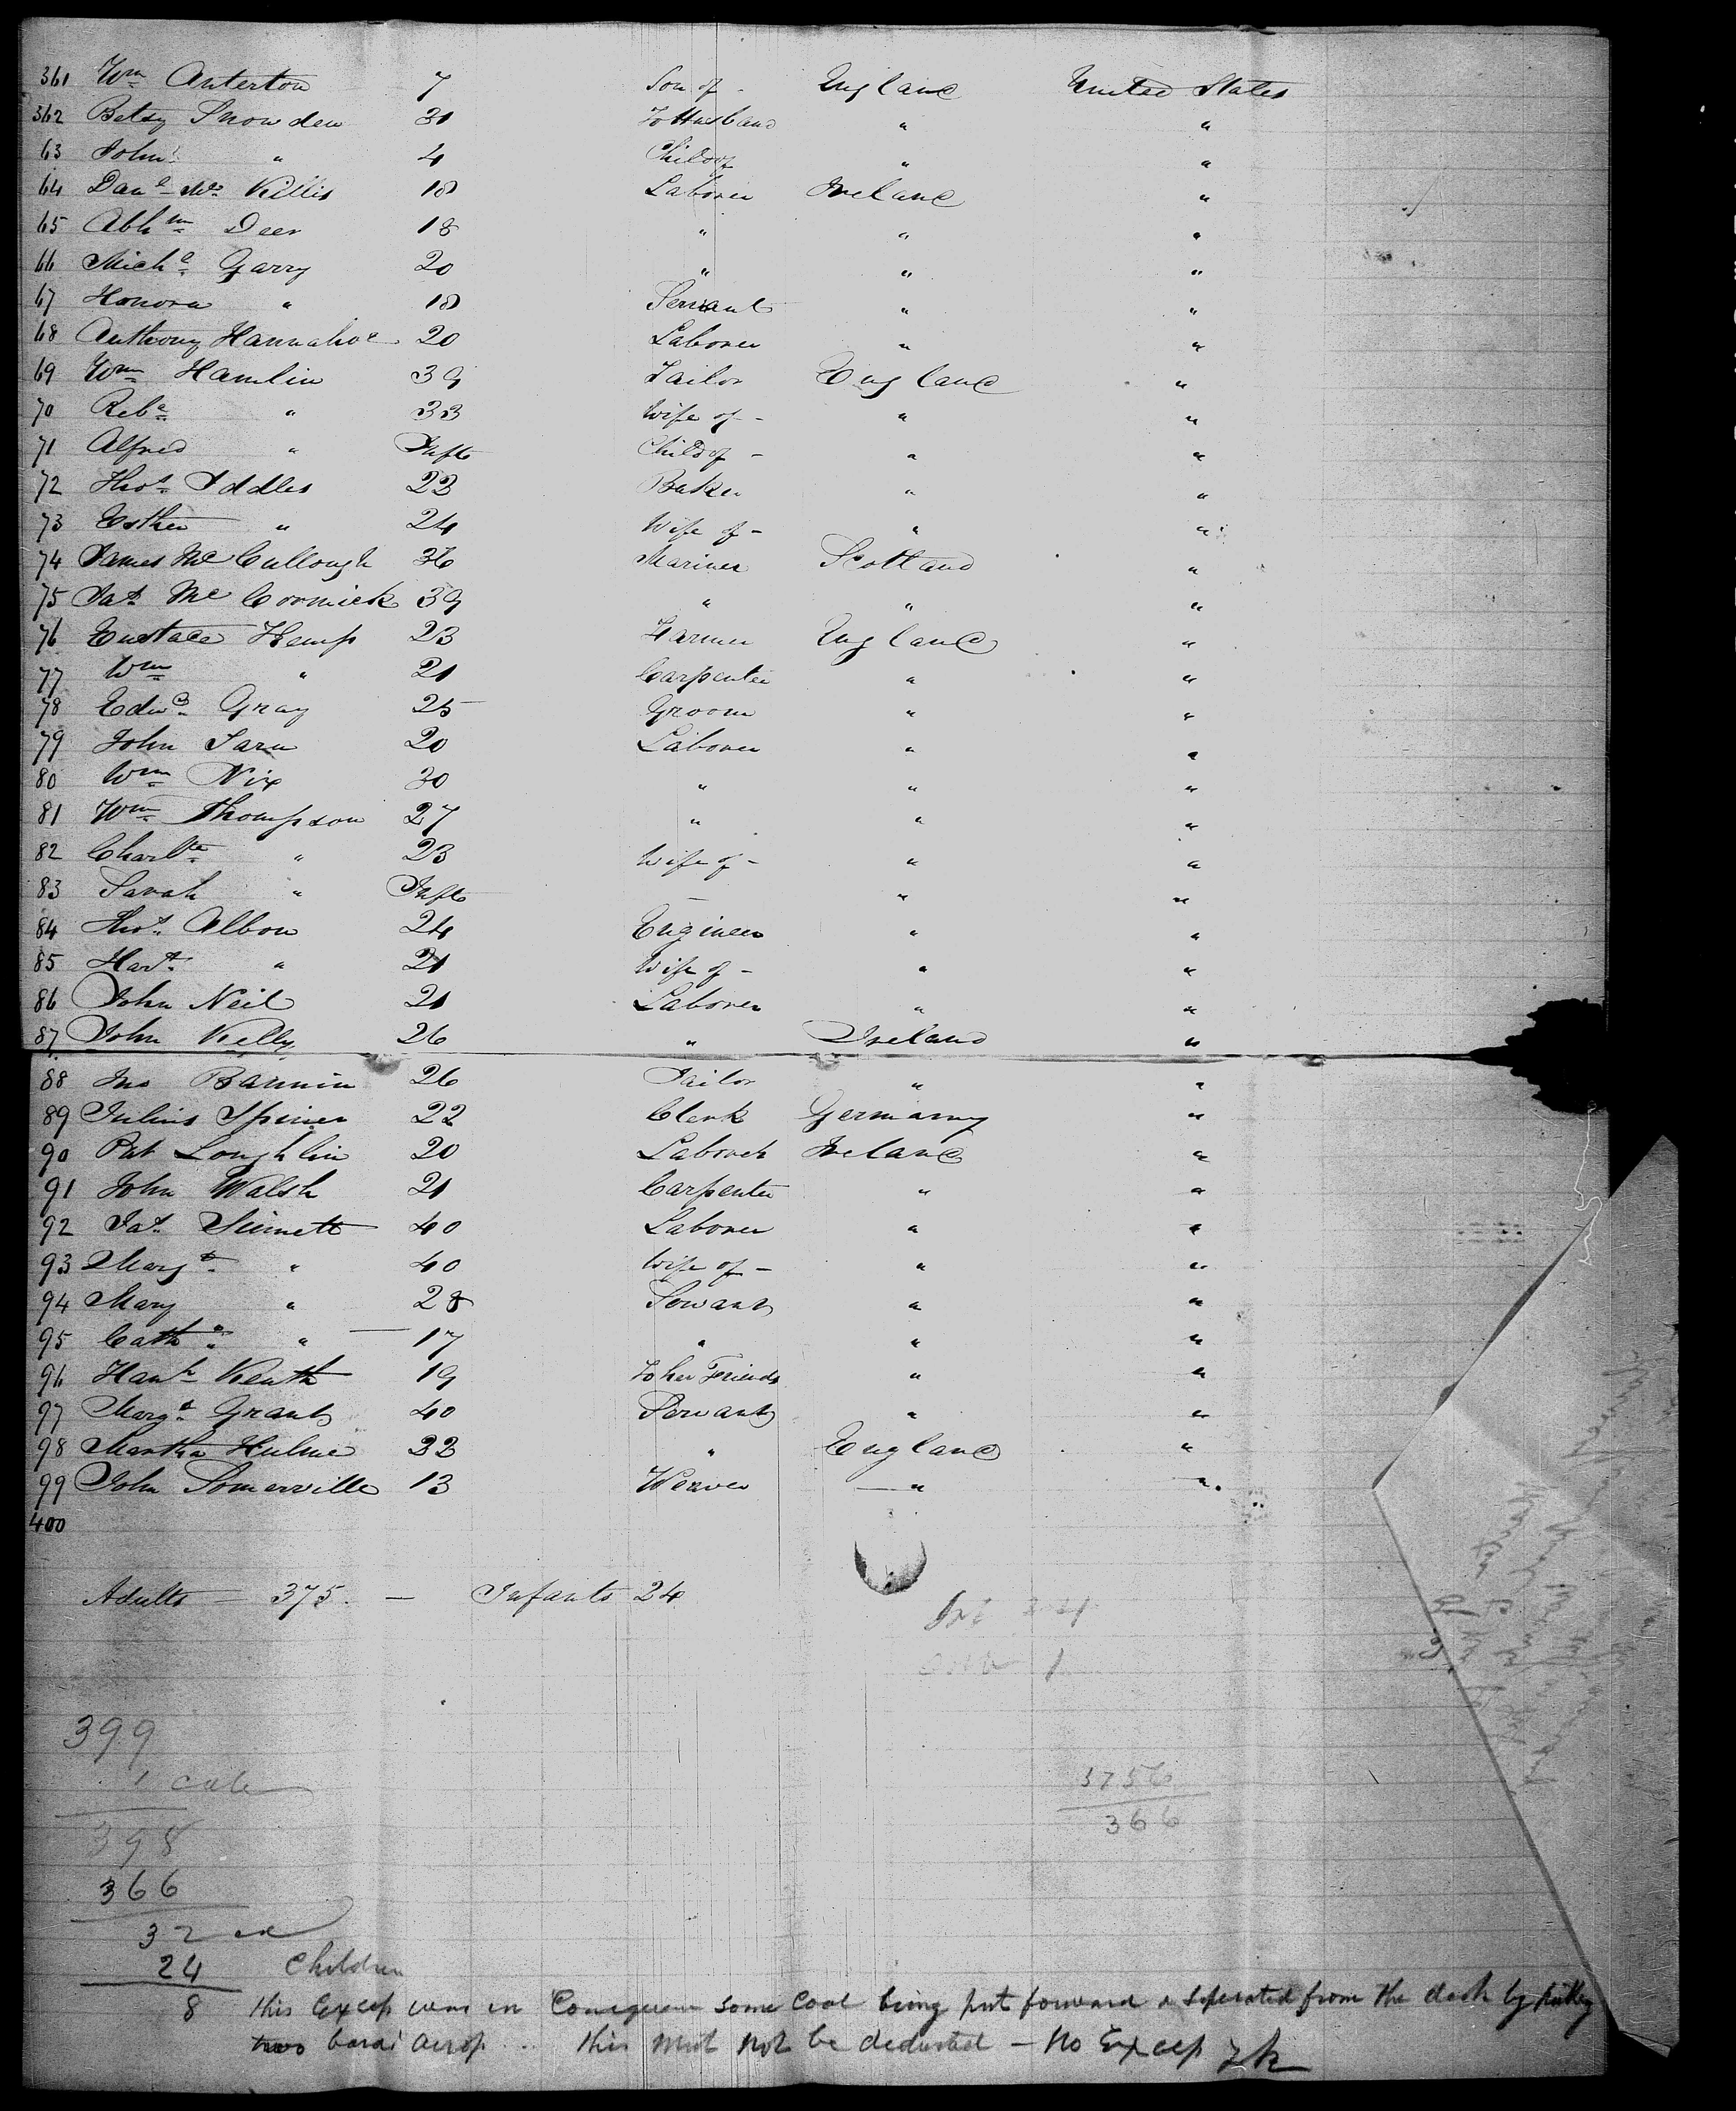 361 Wm Anterton 7 Son of - England United States
362 Betsy Snowden 30 To Husband " "
63 John " 4 Child of " "
64 Danl Mc Killis 18 Laborer Ireland "
65 Abhm Deer 18 " " "
66 Michl Garry 20 " " "
67 Honora " 18 Servant " "
68 Anthony Hannahoe 20 Laborer " "
69 Wm Hamlin 39 Tailor England "
70 Reba " 33 Wife of - " "
71 Alfred " Inft Child of - " "
72 Thos Iddles 23 Baker " "
73 Esther " 24 Wife of - " "
74 James Mc Cullough 36 Mariner Scotland "
75 Jas Mc Cormick 39 " " "
76 Eustace Hemp 23 Farmer England "
77 Wm " 21 Carpenter " "
78 Edwd Gray 25 Groom " "
79 John Sarn 20 Laborer " "
80 Wm Nix 30 " " "
81 Wm Thompson 27 " " "
82 Charlte " 23 Wife of - " "
83 Sarah " Inft — " "
84 Thos Albon 24 Engineer " "
85 Hart " 21 Wife of - " "
86 John Neil 21 Laborer " "
87 John Kelly 26 " Ireland "
88 Jno Bannin 26 Tailor " "
89 Julius Spiner 22 Clerk Germany "
90 Pat Loughlin 20 Laborer Ireland "
91 John Walsh 21 Carpenter " "
92 Jas Sinnett 40 Laborer " "
93 Margt " 40 Wife of - " "
94 Mary " 28 Servant " "
95 Cathe " — 17 " " "
96 Hanh Keath 19 To her Friends " "
97 Margt Grant 40 Servant " "
98 Martha Hulme 33 " England "
99 John Somerville 13 Weaver — " "
400
Adults — 375. — Infants 24
1
399
1
398
3756
366
366
32
24 Children
8 this Excess was in Consequence some Coal being put forward & seperated from the deck by putting
two bards across .. this must not be deducted — No Excess